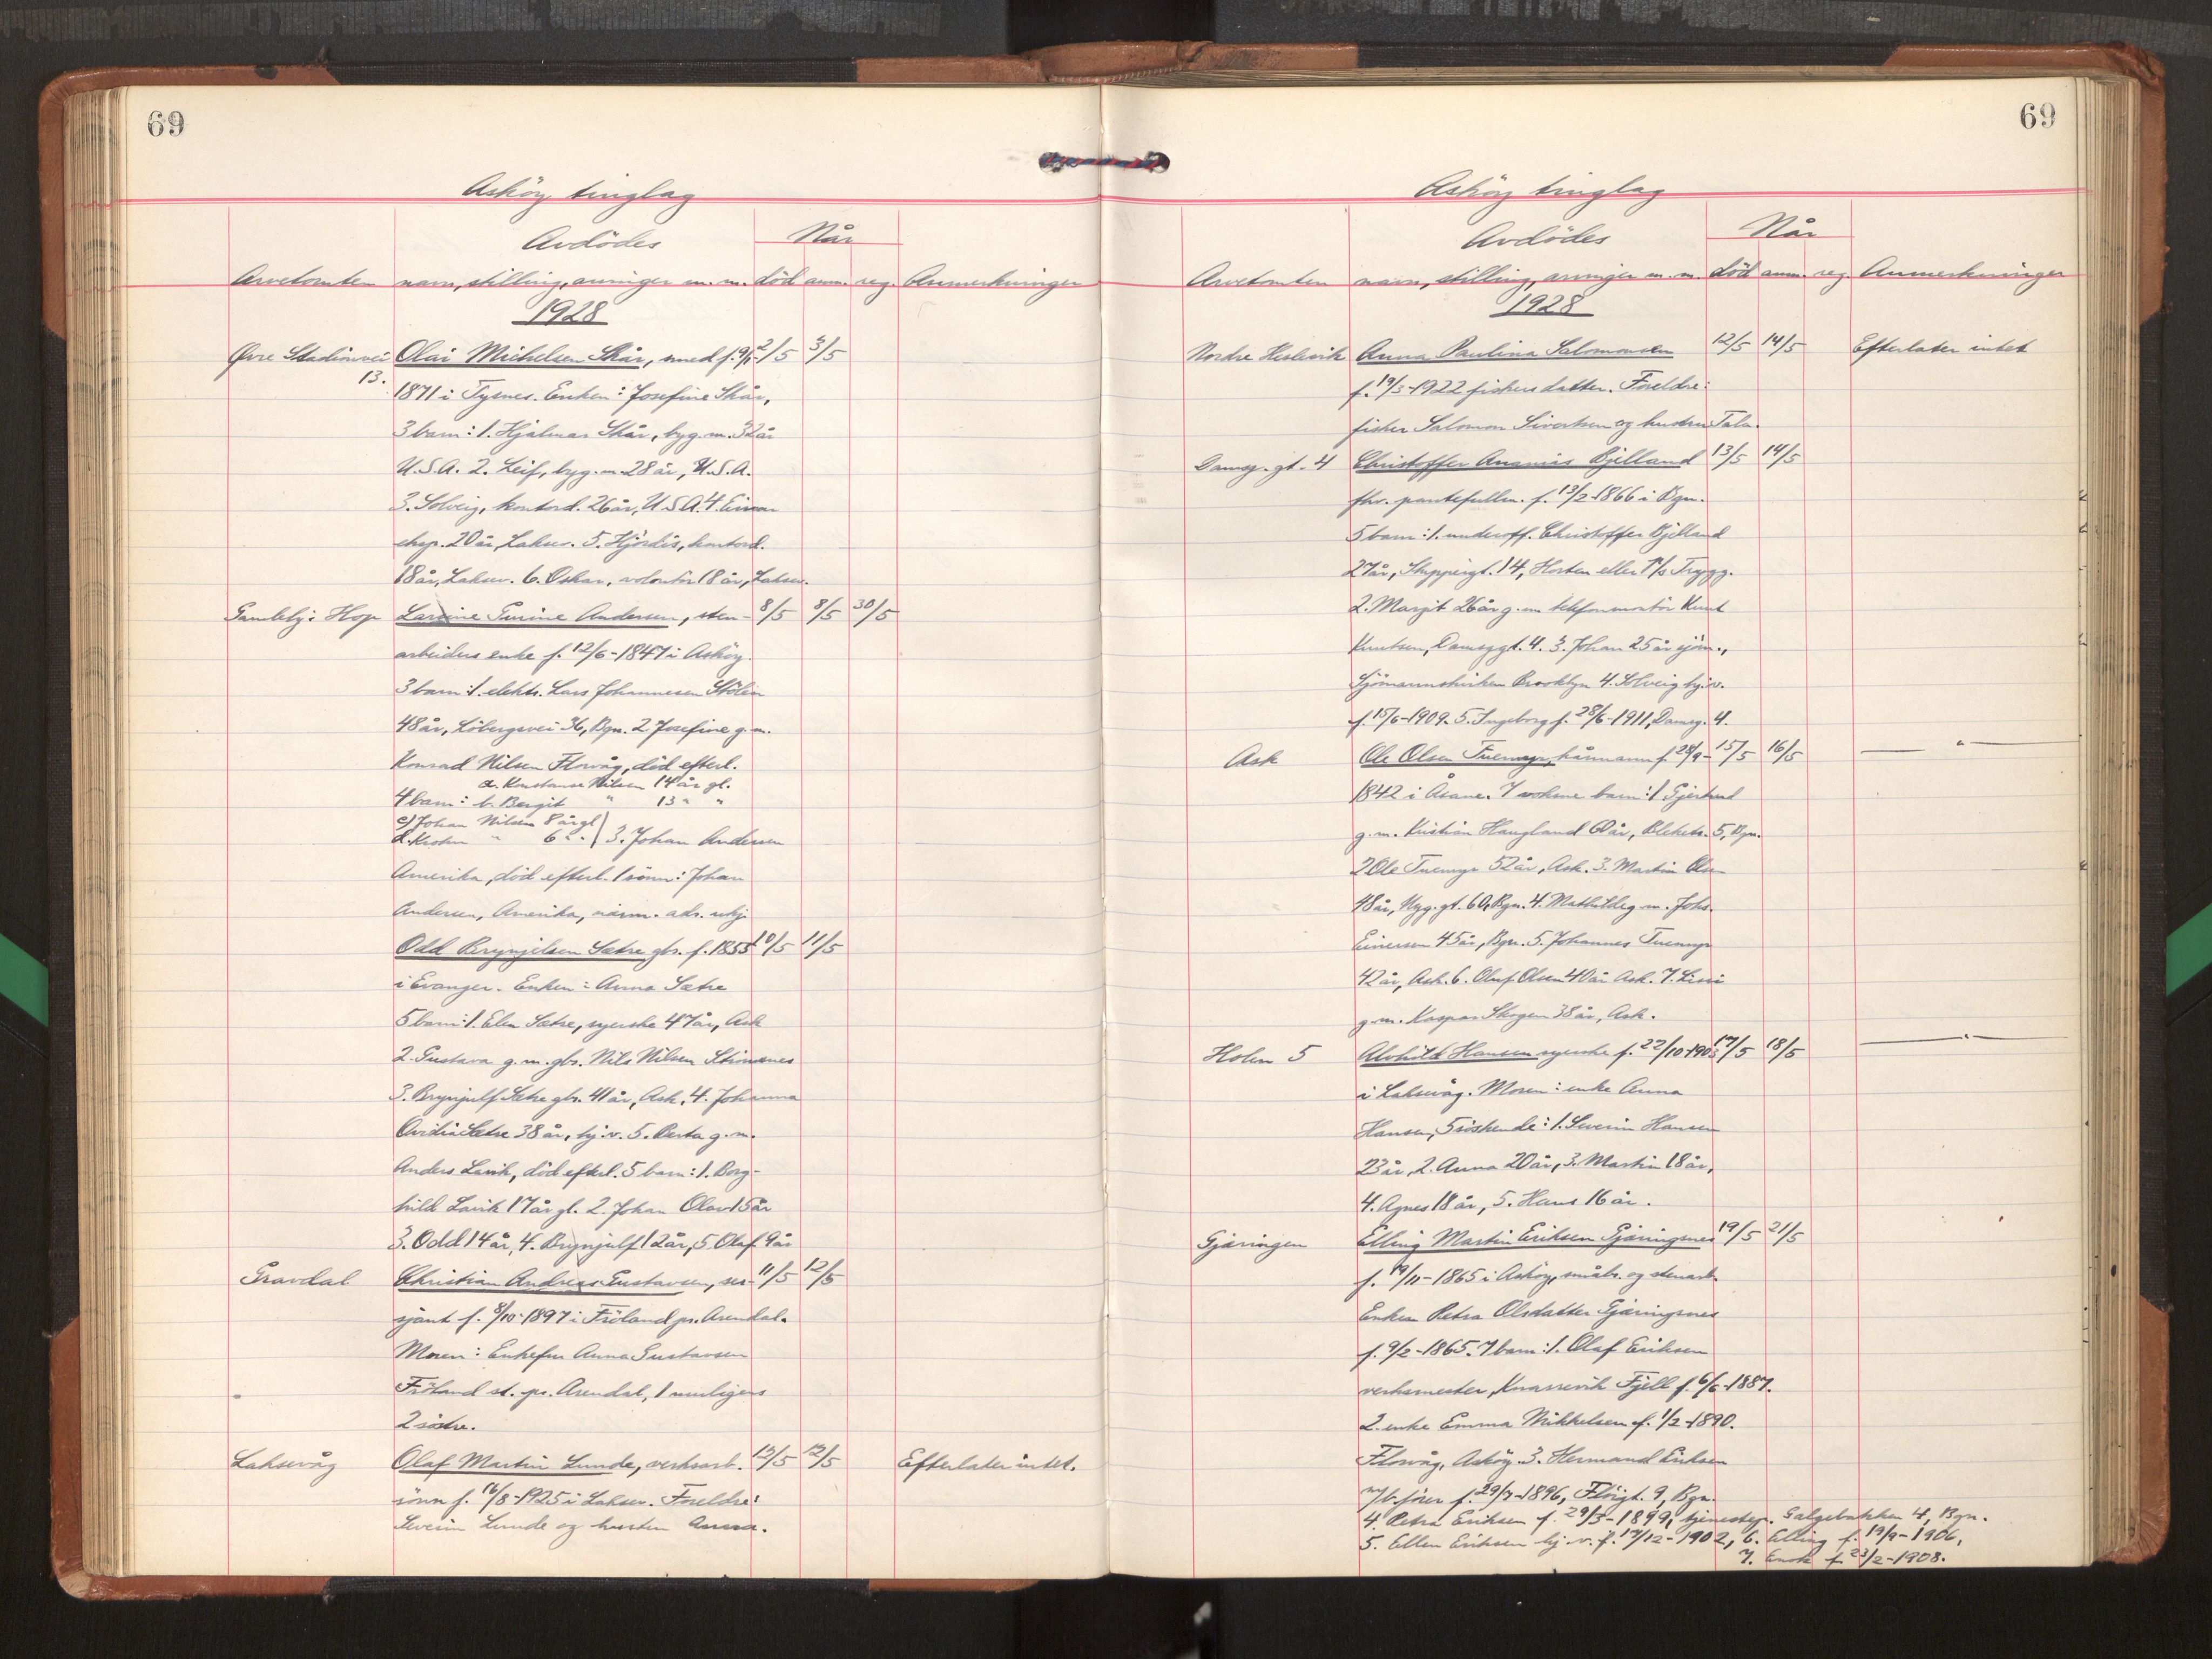 69
Asköy tinglag
Avdödes
Når
Arvetomten navn, stilling, arvinger m. m. död anm. reg. Anmerkninger
1928
Øvre Stadionvei Olai Michelsen Skår, smed f. 9/1- 2/5 3/5
13.
1871 i Tysnes. Enken: Josefine Skår,
3 barn: 1. Hjalmar Skår, byg.m. 32 år
U.S.A. 2. Leif, byg.m. 28 år, U.S.A.
3. Solveig, kontord. 26 år, U.S.A. 4. Einar
eksp. 20 år, Laksev. 5. Hjördis, kontord.
18 år, Laksev. 6. Oskar, volontör 18 år, Laksev.
Gamlehj. Hop Larsine Andersen, sten- 8/5 8/5 30/5
arbeiders enke f. 12/6-1847 i Asköy.
3 barn: 1. elektr. Lars Johannesen Stölen
48 år, Löbergsvei 36, Bgn. 2 Josefine g.m.
Konrad Nilsen Florvåg, död efterl.
a. Konstanse Nilsen 14 år gl.
4 barn: b. Bergit " 13 " "
c) Johan Nilsen 8 år gl
d. Krohn " 6 " . 3. Johan Andersen
Amerika, död efterl. 1 sönn: Johan
Andersen, Amerika, nærm. adr. ubj.
Odd Brynjelsen Sætre gbr. f. 1853 10/5 11/5
i Evanger. Enken: Anna Sætre
5 barn: 1. Elen Sætre, syerske 47 år, Ask
2. Gustava g.m. gbr. Nils Nilsen
3. Brynjulf Sætre gbr. 41 år, Ask, 4. Johanna
Ovidia Sætre 38 år, hj.v. 5. Berta g.m.
Anders Lavik, död efterl. 5 barn: 1. Borg-
hild Lavik 17 år gl. 2. Johan Olav 15 år
3. Odd 14 år, 4. Brynjulf 12 år, 5. Olaf 9 år
Gravdal Christian Andreas Gustavsen, ser- 11/5 12/5
sjant f. 8/10-1897 i Fröland pr. Arendal.
Moren: Enkefru Anna Gustavsen
Fröland st. pr. Arendal, 1 muligens
2 söstre.
Laksevåg Olaf Martin Lunde, verksarb. 12/5 12/5 Efterlater intet.
sönn f. 16/8-1925 i Laksev. Foreldre:
Severin Lunde og hustru Anna.
69
Asköy tinglag
Avdödes
Når
Arvetomten navn, stilling, arvinger m. m. död anm. reg. Anmerkninger
1928
Nordre Anna Paulina Salomonsen 12/5 14/5 Efterlater intet
f. 19/3-1922 fiskers datter. Foreldre:
fisker Salomon Sivertsen og hustru
Damsg. gt. 4 Christoffer Ananias Bjelland 13/5 14/5
fhv. pantefullm. f. 13/2-1866 i Bgn.
5 barn: 1. underoff. Christoffer Bjelland
27 år, Skippergt. 14, Horten eller T/s Trygg.
2. Margit 26 år g.m. telefonmontör Knut
Knutsen, Damsggt. 4. 3. Johan 25 år sjöm.,
Sjömannskirken Brooklyn 4. Solveig hj.v.
f. 15/6-1909. 5. Ingeborg f. 28/6-1911, Damsg. 4.
Ask Ole Olsen Tuemyr, kårmann f. 28/9- 15/5 16/5 — " —
1842 i Åsane. 7 voksne barn: 1 Gjertrud
g.m. Kristian Haugland 60 år, Blekebr. 5, Bgn.
2 Ole Tuemyr 52 år, Ask. 3. Martin Olsen
48 år, Nyg.gt. 60, Bgn. 4. Mathilde g.m. Johs.
Einersen 45 år, Bgn. 5. Johannes Tuemyr
42 år, Ask. 6. Oluf Olsen 40 år Ask. 7. Lissi
g.m. Kaspar Skogen 38 år, Ask.
Holen 5 Alvhild Hansen syerske f. 22/10-1903 17/5 18/5 — " —
i Laksevåg. Moren: enke Anna
Hansen, 5 söskende: 1. Severin Hansen
23 år, 2. Anna 20 år, 3. Martin 18 år,
4. Agnes 18 år, 5. Hans 16 år.
Gjæringen Elling Martin Eriksen Gjæringsnes 19/5 21/5
f. 19/11-1865 i Asköy, småbr. og stenarb.
Enken Petra Olsdatter Gjæringsnes
f. 9/2-1865. 7 barn: 1. Olaf Eriksen
verksmester, Knarrevik Fjell f. 6/6-1887.
2. enke Emma Mikkelsen f. 1/2-1890.
Florvåg, Asköy. 3. Hermand Eriksen
m/b. förer f. 29/7-1896, Flöigt. 9, Bgn.
4. Petra Eriksen f. 29/3-1899, tjenestep. Galgebakken 4, Bgn.
5. Ellen Eriksen hj.v. f. 17/12-1902, 6. Elling f. 19/9-1906,
7. f. 23/2-1908.